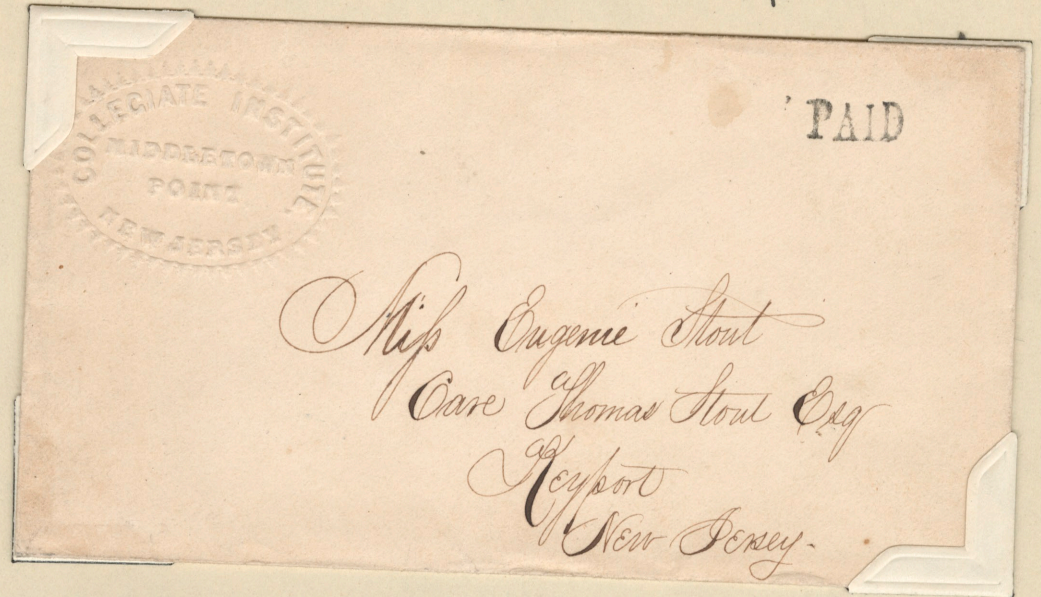 COLLEGIATE INSTITUTE,
MIDDLETOWN
POINT
NEW JERSEY
PAID
Miss Eugenie Stout
Care Thomas Stout Esq
Keyport
New Jersey.